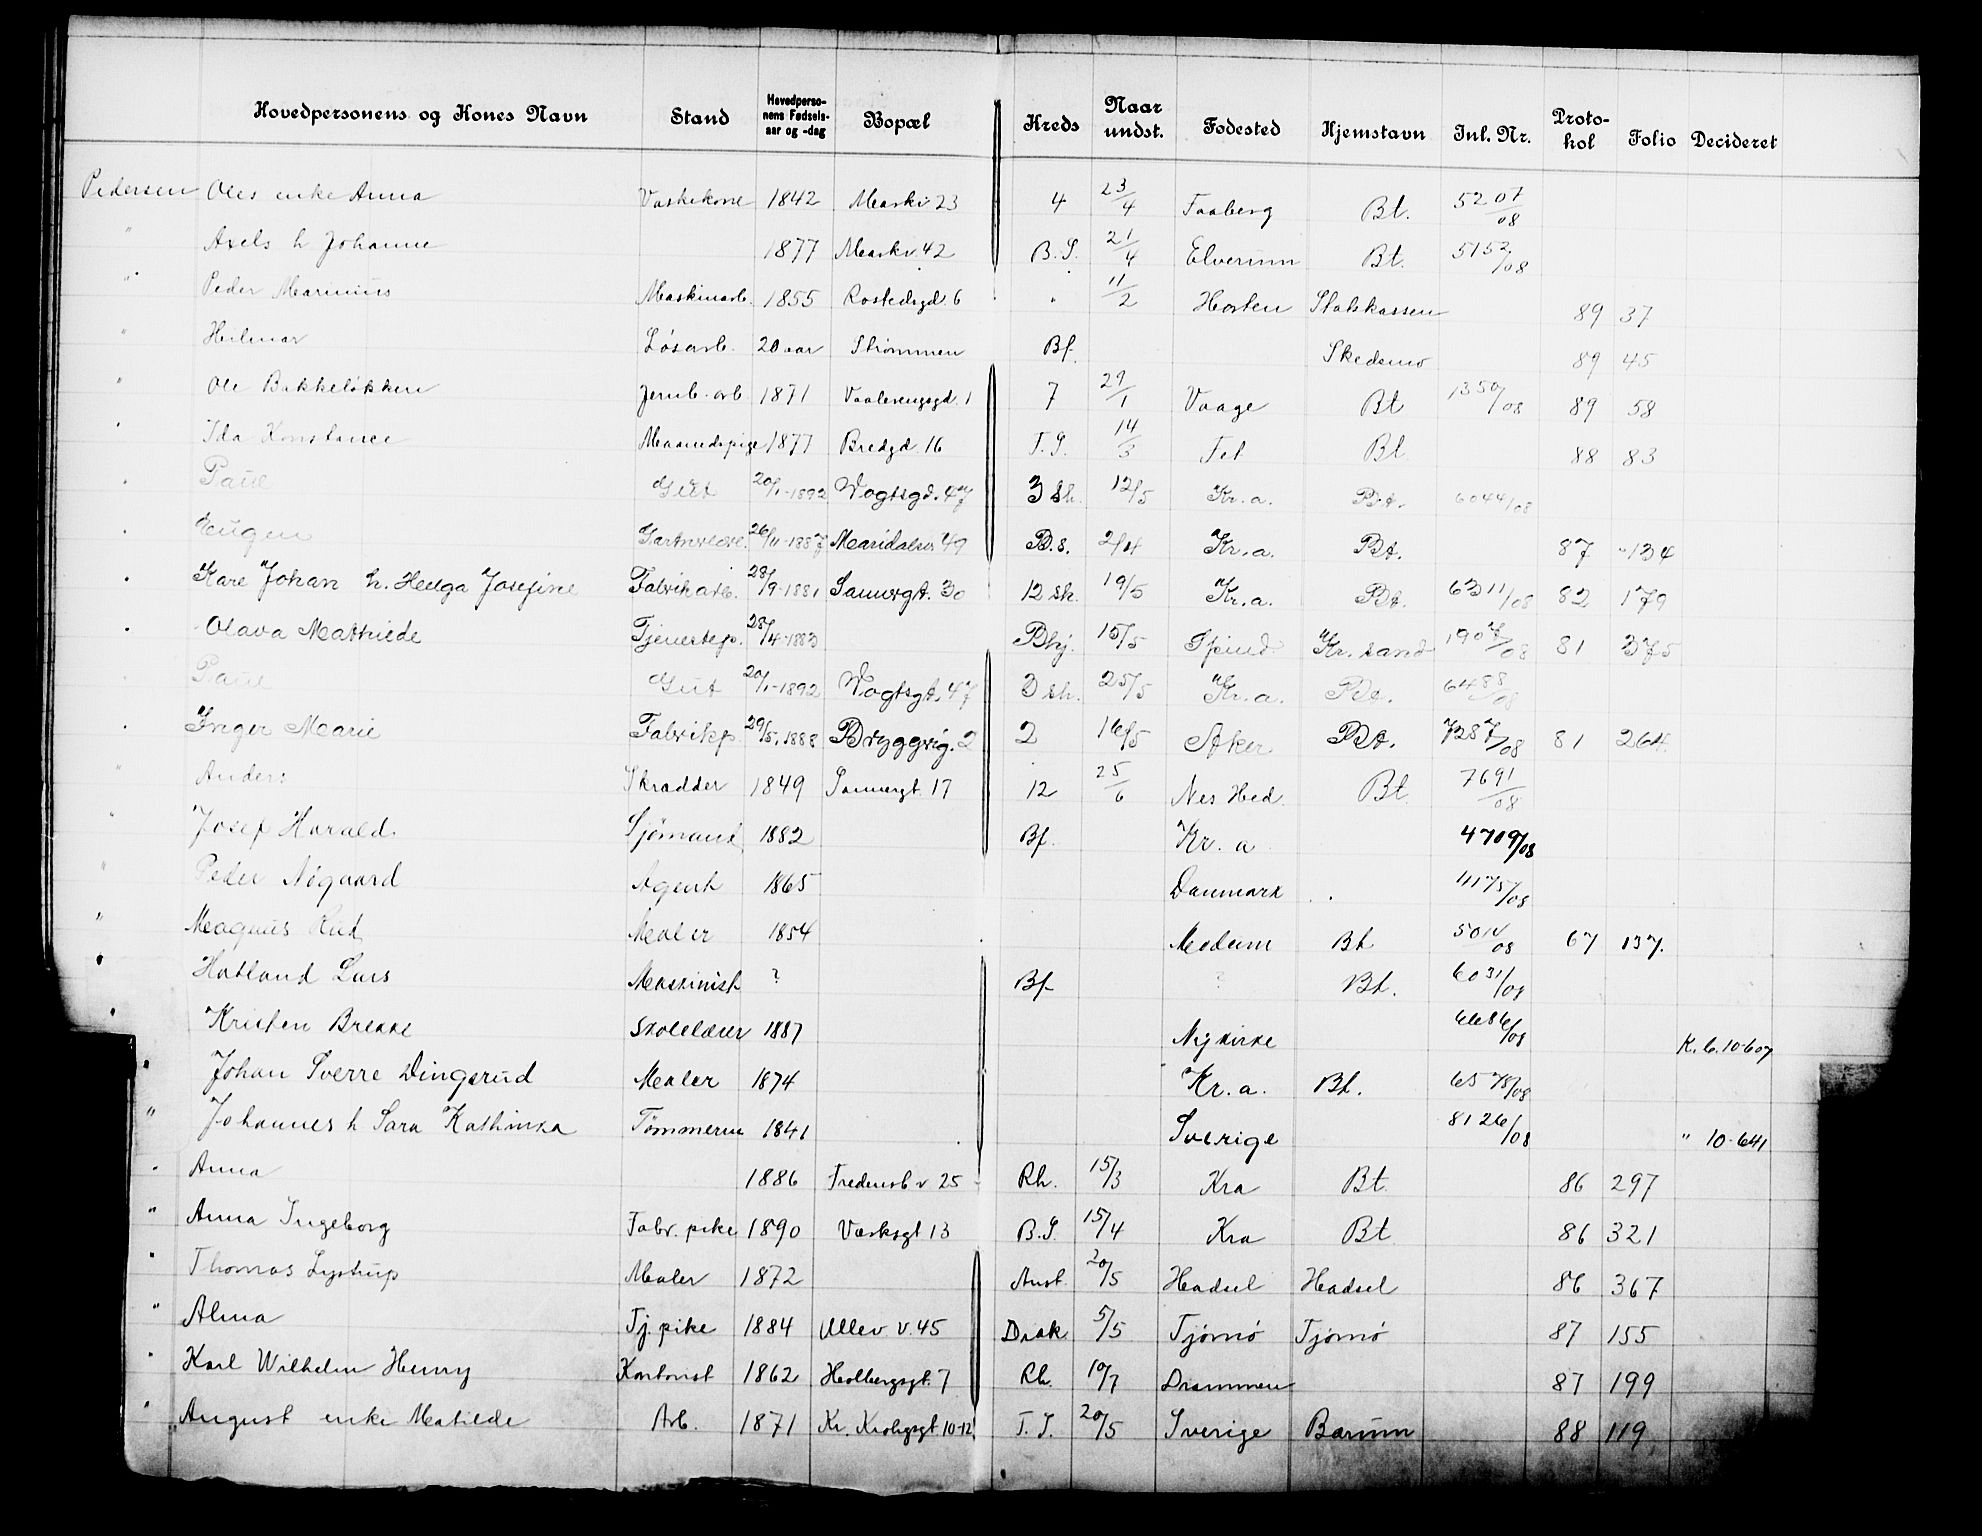 Hovedpersonens og Kones Navn Stand Hovedpersonens Fødselsaar og -dag Bopæl Kreds Naar undst. Fødested Hjemstavn Inl. Nr. Protokol Folio Decideret
Pedersen Oles enke Anna Vaskekone 1842 Markv 23 4 23/4 Faaberg Bt. 5207/08
" Axels h Johanne 1877 Markv. 42 B.S. 21/4 Elverum Bt. 5152/08
" Peder Marinius Maskinarb. 1855 Rostedsgd. 6 " 11/2 Horten Statskassen 89 37
" Hilmar Løsarb. 20 aar Strømmen Bf. Skedsmo 89 45
" Ole Bakkeløkken Jernb. arb 1871 Vaalerengsgd. 1 7 29/1 Vaage Bt 1350/08 89 58
" Ida Konstance Maanedspige 1877 Bredgd. 16 T.S. 14/3 Fet Bt. 88 83
" Paul Gut 20/1-1892 Vogtsgd. 47 3 sk. 12/5 Kr.a. Bt. 6044/08
" Eugen 26/11-1887 Maridalsv. 49 B.s. 2/4 Kr.a. Bt. 87 134
" Karl Johan h. Helga Josefine Fabrikarb. 28/9-1881 Sannergt. 30 12 sk. 19/5 Kr.a. Bt. 6311/08 82 179
" Olava Mathilde Tjenestep. 28/4-1883 Bhj. 15/5 Spind Kr.sand 1907/08 81 375
" Paul Gut 20/1-1892 Vogtsgt. 47 3 sk. 25/5 Kr.a. Bt. 6488/08
" Inger Marie Fabrikp. 29/5.1888 Bryggrig. 2 2 16/5 Aker Bt. 7287/08 81 264.
" Anders Skradder 1849 Sannergt. 17 12 25/6 Nes Hed. Bt. 7691/08
" Josef Harald. Sjømand 1882 Bf. Kr.a 4709/08
" Peder Nögaard Agent 1865 Danmark " 4175/08
" Magnus Rud Maler 1854 Modum Bt 5014/08 67 137.
" Hatland Lars Maskinist ? Bf ? Bt. 6031/08
" Kristen Brekke Skolelærer 1887 Nykirke 6686/08 K. 6. 10-607
" Johan Sverre Dingsrud Maler 1874 Kr.a. Bt. 6578/08
" Johannes h Sara Kathinka Tømmerm 1841 Sverige 8126/08 " 10-641
" Anna 1886 Fredensb v 25 Rh. 15/3 Kra Bt. 86 297
" Anna Ingeborg Fabr. pike 1890 Verksgt 13 B.S. 15/4 Kra Bt 86 321
" Thomas Lystrup Maler 1872 Anst. 20/5 Hadsel Hadsel 86 367
" Alma Tj. pike 1884 Ullev. v. 45 Diak. 5/5 Tjømø Tjømø 87 155
" Karl Wilhelm Henry Kontorist 1862 Holbergsgt. 7 Rh. 10/7 Drammen 87 199
" August enke Matilde Arb. 1871 Kr. Krohgsgt 10-12. T.S. 20/5 Sverige Bærum 88 119